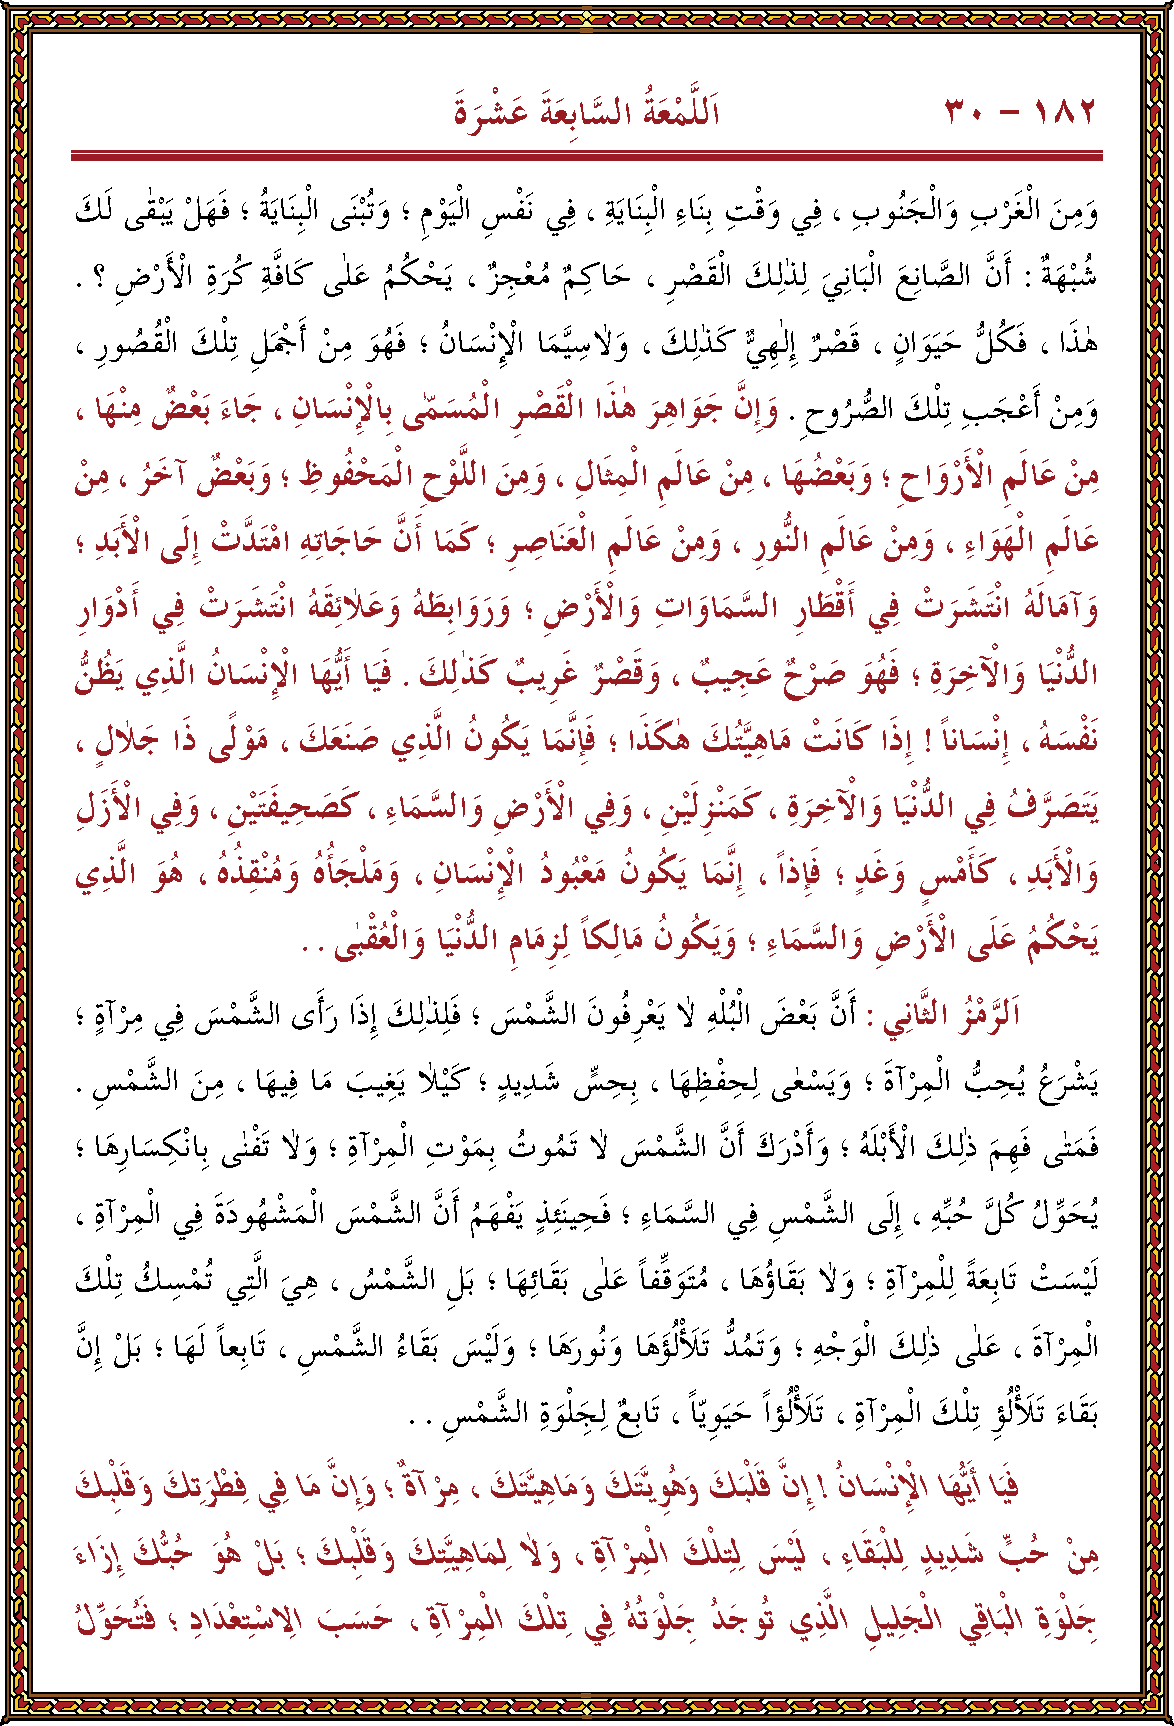 ١٨٢ – ٣٠ اَللَّمْعَةُ السَّابِعَةَ عَشْرَةَ
وَمِنَ الْغَرْبِ وَالْجَنُوبِ ، فِي وَقْتِ بِنَاءِ الْبِنَايَةِ ، فِي نَفْسِ الْيَوْمِ ؛ وَتُبْنَى الْبِنَايَةُ ؛ فَهَلْ يَبْقٰى لَكَ
شُبْهَةٌ : أَنَّ الصَّانِعَ الْبَانِيَ لِذٰلِكَ الْقَصْرِ ، حَاكِمٌ مُعْجِزٌ ، يَحْكُمُ عَلٰى كَافَّةِ كُرَةِ الْأَرْضِ ؟ .
هٰذَا ، فَكُلُّ حَيَوَانٍ ، قَصْرٌ إِلٰهِيٌّ كَذٰلِكَ ، وَلاٰسِيَّمَا الْإِنْسَانُ ؛ فَهُوَ مِنْ أَجْمَلِ تِلْكَ الْقُصُورِ ،
وَمِنْ أَعْجَبِ تِلْكَ الصُّرُوحِ . وَإِنَّ جَوَاهِرَ هٰذَا الْقَصْرِ الْمُسَمّٰى بِالْإِنْسَانِ ، جَاءَ بَعْضٌ مِنْهَا ،
مِنْ عَالَمِ الْأَرْوَاحِ ؛ وَبَعْضُهَا ، مِنْ عَالَمِ الْمِثَالِ ، وَمِنَ اللَّوْحِ الْمَحْفُوظِ ؛ وَبَعْضٌ آخَرُ ، مِنْ
عَالَمِ الْهَوَاءِ ، وَمِنْ عَالَمِ النُّورِ ، وَمِنْ عَالَمِ الْعَنَاصِرِ ؛ كَمَا أَنَّ حَاجَاتِهِ امْتَدَّتْ إِلَى الْأَبَدِ ؛
وَآمَالَهُ انْتَشَرَتْ فِي أَقْطَارِ السَّمَاوَاتِ وَالْأَرْضِ ؛ وَرَوَابِطَهُ وَعَلاٰئِقَهُ انْتَشَرَتْ فِي أَدْوَارِ
الدُّنْيَا وَالْآخِرَةِ ؛ فَهُوَ صَرْحٌ عَجِيبٌ ، وَقَصْرٌ غَرِيبٌ كَذٰلِكَ . فَيَا أَيُّهَا الْإِنْسَانُ الَّذِي يَظُنُّ
نَفْسَهُ ، إِنْسَاناً ! إِذَا كَانَتْ مَاهِيَّتُكَ هٰكَذَا ؛ فَإِنَّمَا يَكُونُ الَّذِي صَنَعَكَ ، مَوْلًى ذَا جَلاٰلٍ ،
يَتَصَرَّفُ فِي الدُّنْيَا وَالْآخِرَةِ ، كَمَنْزِلَيْنِ ، وَفِي الْأَرْضِ وَالسَّمَاءِ ، كَصَحِيفَتَيْنِ ، وَفِي الْأَزَلِ
وَالْأَبَدِ ، كَأَمْسٍ وَغَدٍ ؛ فَإِذاً ، إِنَّمَا يَكُونُ مَعْبُودُ الْإِنْسَانِ ، وَمَلْجَأُهُ وَمُنْقِذُهُ ، هُوَ الَّذِي
يَحْكُمُ عَلَى الْأَرْضِ وَالسَّمَاءِ ؛ وَيَكُونُ مَالِكاً لِزِمَامِ الدُّنْيَا وَالْعُقْبٰى . .
اَلرَّمْزُ الثَّانِي : أَنَّ بَعْضَ الْبُلْهِ لاٰ يَعْرِفُونَ الشَّمْسَ ؛ فَلِذٰلِكَ إِذَا رَأَى الشَّمْسَ فِي مِرْآةٍ ؛
يَشْرَعُ يُحِبُّ الْمِرْآةَ ؛ وَيَسْعٰى لِحِفْظِهَا ، بِحِسٍّ شَدِيدٍ ؛ كَيْلاٰ يَغِيبَ مَا فِيهَا ، مِنَ الشَّمْسِ .
فَمَتٰى فَهِمَ ذٰلِكَ الْأَبْلَهُ ؛ وَأَدْرَكَ أَنَّ الشَّمْسَ لاٰ تَمُوتُ بِمَوْتِ الْمِرْآةِ ؛ وَلاٰ تَفْنٰى بِانْكِسَارِهَا ؛
يُحَوِّلُ كُلَّ حُبِّهِ ، إِلَى الشَّمْسِ فِي السَّمَاءِ ؛ فَحِينَئِذٍ يَفْهَمُ أَنَّ الشَّمْسَ الْمَشْهُودَةَ فِي الْمِرْآةِ ،
لَيْسَتْ تَابِعَةً لِلْمِرْآةِ ؛ وَلاٰ بَقَاؤُهَا ، مُتَوَقِّفاً عَلٰى بَقَائِهَا ؛ بَلِ الشَّمْسُ ، هِيَ الَّتِي تُمْسِكُ تِلْكَ
الْمِرْآةَ ، عَلٰى ذٰلِكَ الْوَجْهِ ؛ وَتَمُدُّ تَلَأْلُؤَهَا وَنُورَهَا ؛ وَلَيْسَ بَقَاءُ الشَّمْسِ ، تَابِعاً لَهَا ؛ بَلْ إِنَّ
بَقَاءَ تَلَأْلُؤِ تِلْكَ الْمِرْآةِ ، تَلَأْلُؤاً حَيَوِيّاً ، تَابِعٌ لِجِلْوَةِ الشَّمْسِ . .
فَيَا أَيُّهَا الْإِنْسَانُ ! إِنَّ قَلْبَكَ وَهُوِيَّتَكَ وَمَاهِيَّتَكَ ، مِرْآةٌ ؛ وَإِنَّ مَا فِي فِطْرَتِكَ وَقَلْبِكَ
مِنْ حُبٍّ شَدِيدٍ لِلْبَقَاءِ ، لَيْسَ لِتِلْكَ الْمِرْآةِ ، وَلاٰ لِمَاهِيَّتِكَ وَقَلْبِكَ ؛ بَلْ هُوَ حُبُّكَ إِزَاءَ
جِلْوَةِ الْبَاقِي الْجَلِيلِ الَّذِي تُوجَدُ جِلْوَتُهُ فِي تِلْكَ الْمِرْآةِ ، حَسَبَ الِاسْتِعْدَادِ ؛ فَتُحَوِّلُ